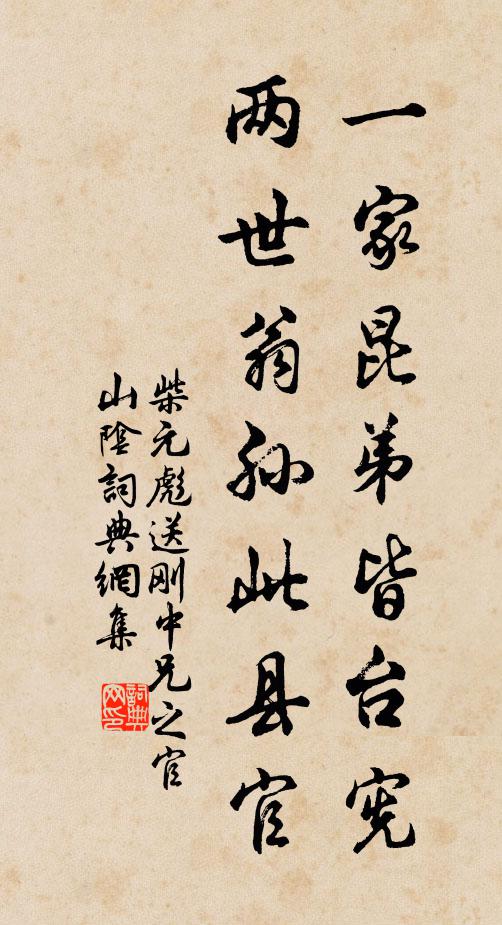 一家昆弟皆台宪
两世翁孙此县官
柴元彪送刚中兄之官
山陰詞典網集
詞典网印